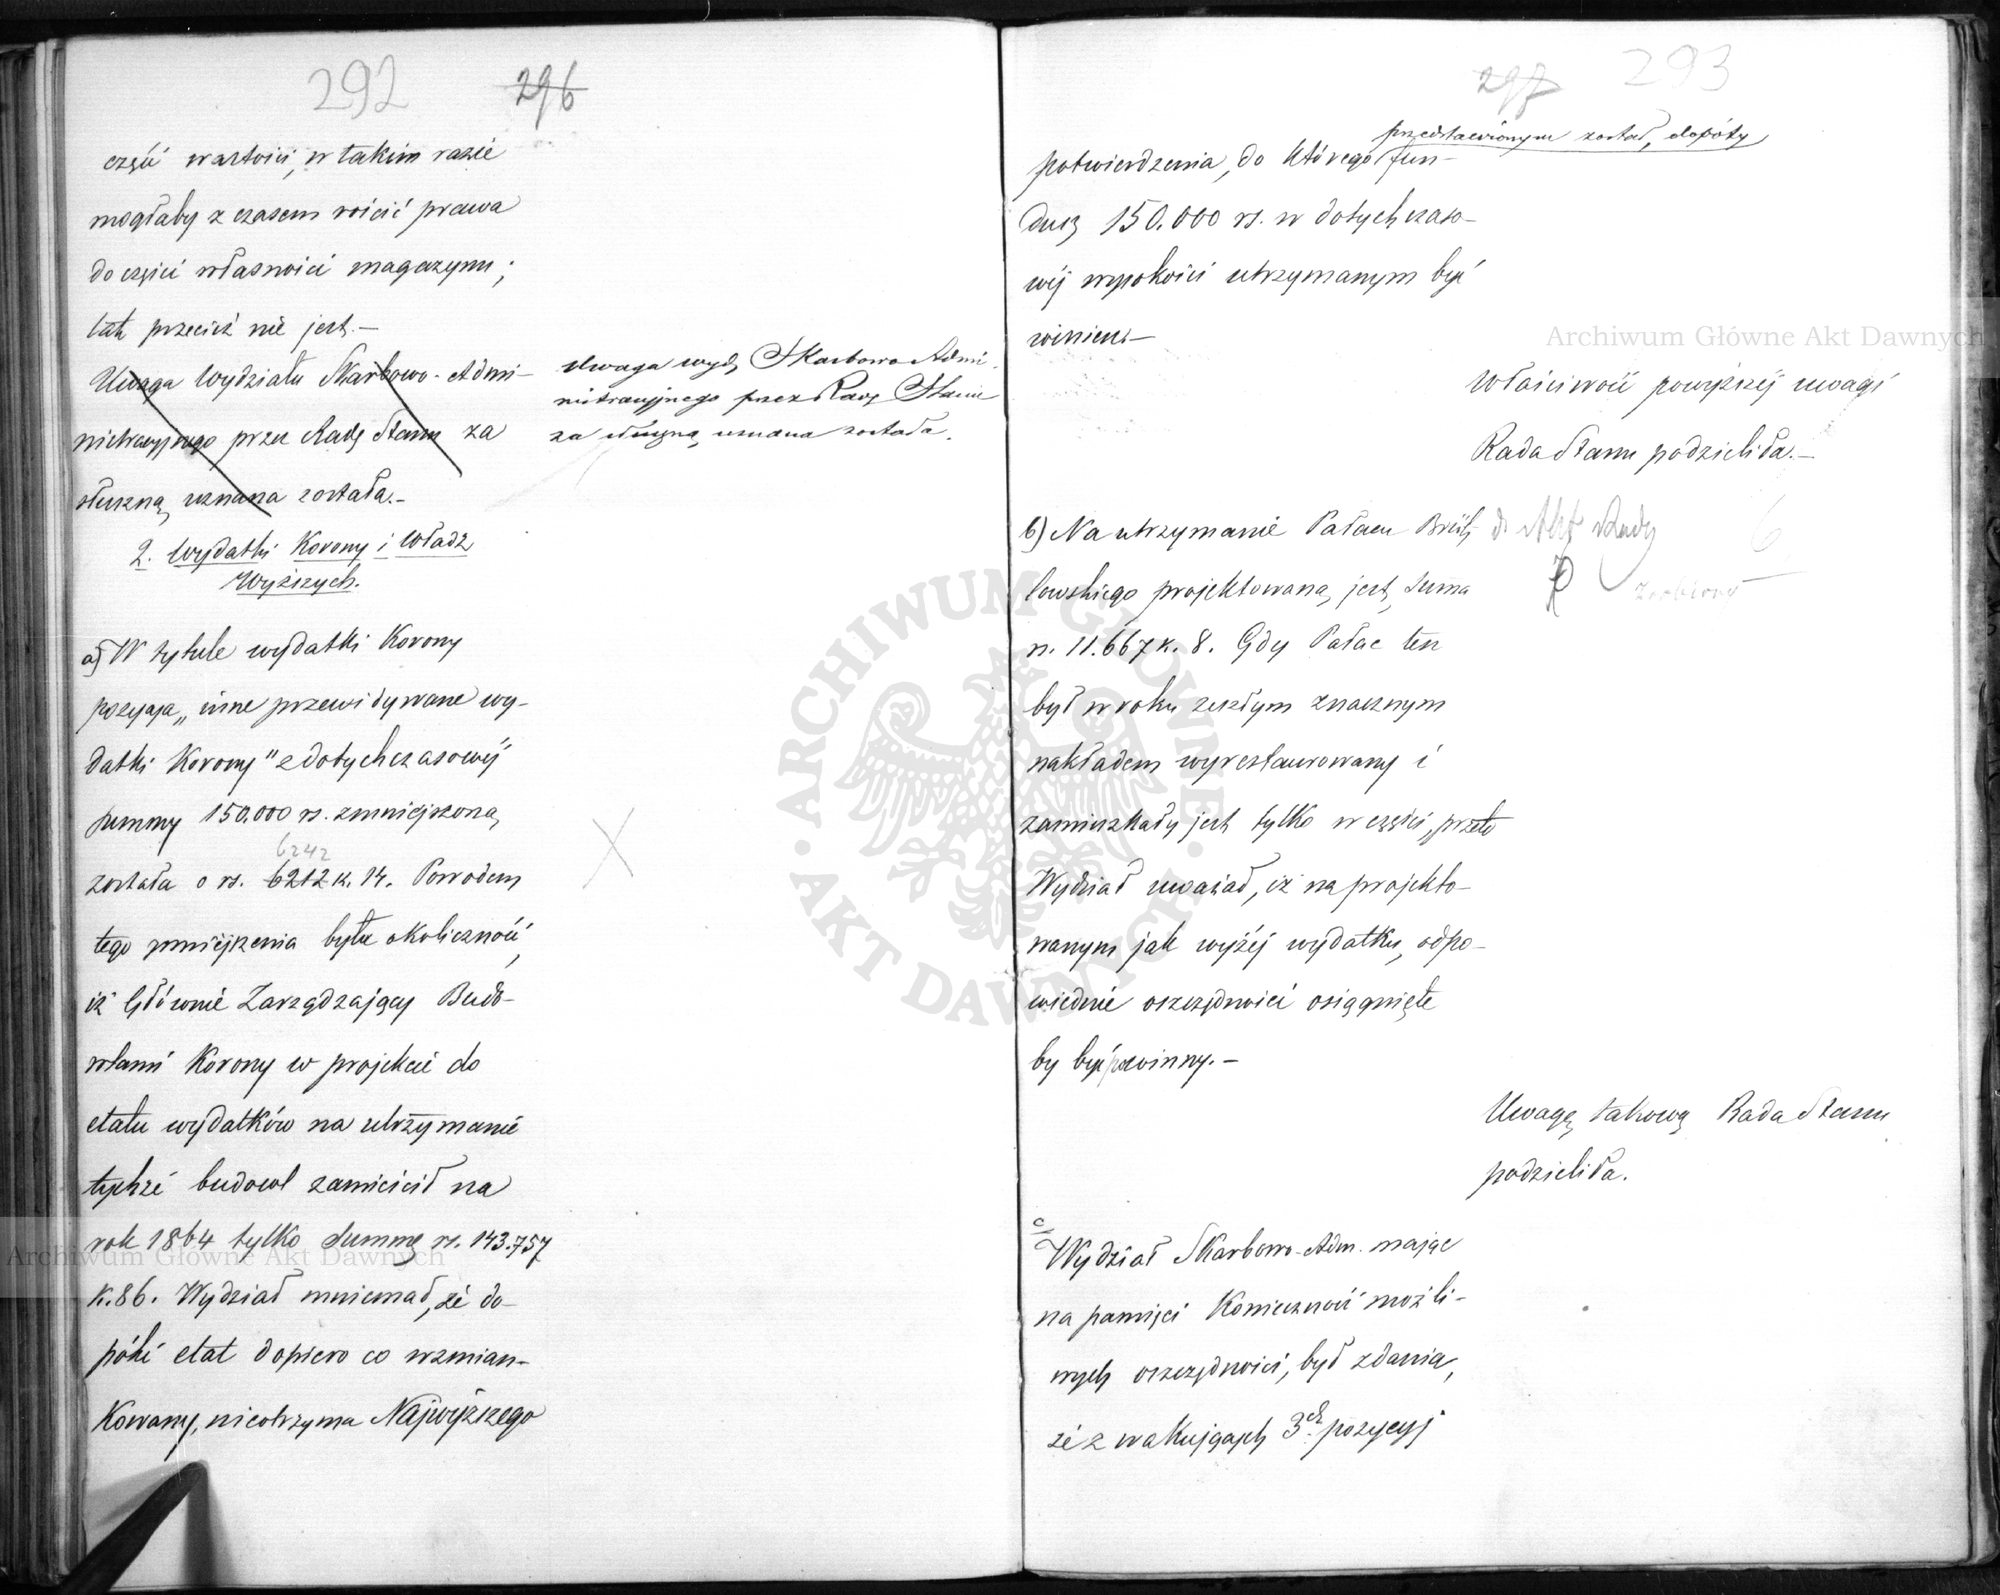 292 296
część wartości, w takim razie
mogłaby z czasem rościć prawa
do części własności magazynu;
tak przecież nie jest.—
Uwaga Wydziału Skarbowo-Admi-
nistracyjnego przez Radę Stanu za
słuszną uznana została.—
Uwaga wydz Skarbowo Admi
nistracyjnego przez Radę Stanu
za słuszną uznana została.
2. Wydatki Korony i Władz
Wyższych.
a) W tytule wydatki Korony
pozycja „inne przewidywane wy-
datki Korony" z dotychczasowéj
summy 150.000 rs. zmniejszoną
6242
została o rs. 6212 k. 14. Powodem
tego zmniejszenia była okoliczność,
iż Głównie Zarządzający Budo-
wlami Korony w projekcie do
etatu wydatków na utrzymanie
tychże budowl zamieścił na
rok 1864 tylko Summę rs. 143.757
k. 86. Wydział mniemał, że do-
póki etat dopiero co wzmian-
kowany, nieotrzyma Najwyższego
297 293
przedstawionym został, dopóty
potwierdzenia, do którego fun-
dusz 150.000 rs. w dotychczaso-
wéj wysokości utrzymanym być
winien.—
Właściwość powyższéj uwagi
Rada Stanu podzieliła.—
b) Na utrzymanie Pałacu Brüh-
lowskiego projektowaną jest Suma
rs. 11.667 k. 8. Gdy Pałac ten
był w roku zeszłym znacznym
nakładem wyrestaurowany i
zamieszkały jest tylko w części, przeto
Wydział uważał, iż na projekto-
wanym jak wyżéj wydatku, odpo-
wiednie oszczędności osiągnięte
by być powinny.—
do Akt Rady
6
Zrobiony
Uwagę takową Rada Stanu
podzieliła.
c/ Wydział Skarbowo-Adm. mając
na pamięci Konieczność możli-
wych oszczędności, był zdania,
że z wakujących 3ch pozycyj
Archiwum Główne Akt Dawnych
Archiwum Główne Akt Dawnych
ARCHIWUM GŁÓWNE AKT DAWNYCH